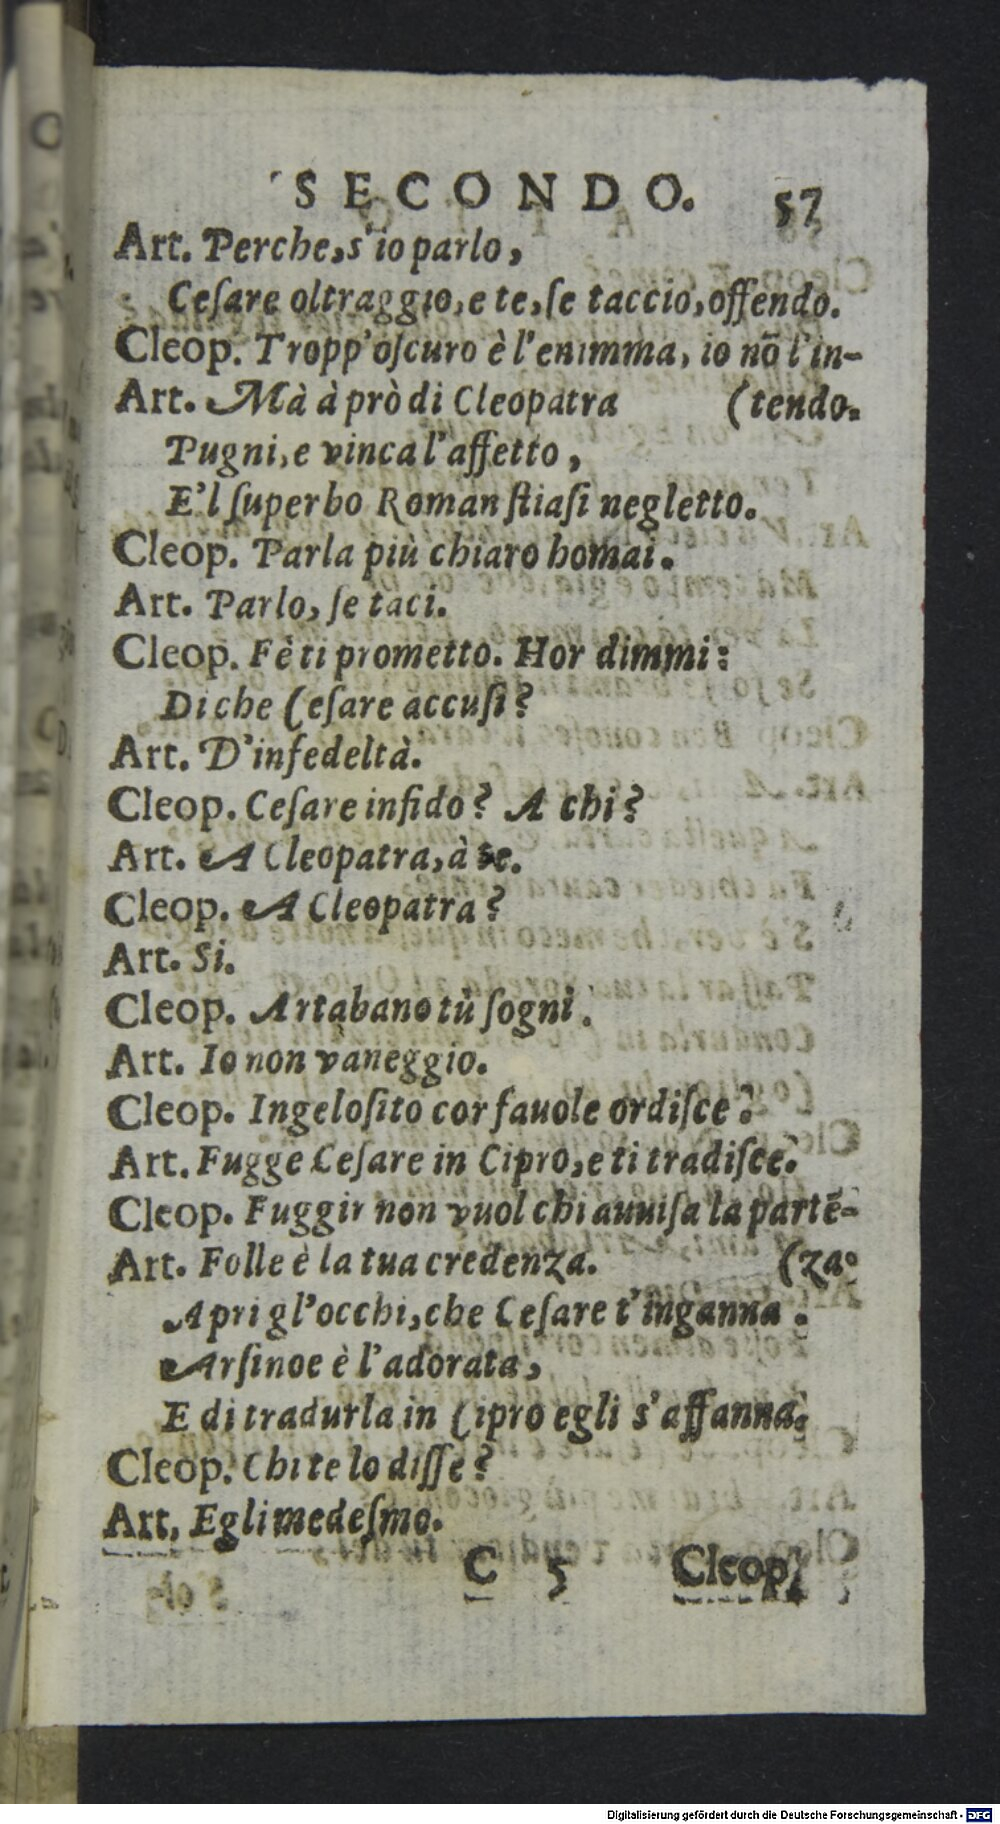 SECONDO. 57
Art. Perche, s'io parlo,
Ceſare oltraggio, e te, ſe taccio, offendo.
Cleop. Tropp'oſcuro è l'enimma, io nō l'in-
Art. Mà à prò di Cleopatra (tendo.
Pugni, e vinca l'affetto,
E'l ſuperbo Roman ſtiaſi negletto.
Cleop. Parla più chiaro homai.
Art. Parlo, ſe taci.
Cleop. Fè ti prometto. Hor dimmi:
Di che Ceſare accuſi?
Art. D'infedeltà.
Cleop. Ceſare infido? A chi?
Art. A Cleopatra, à te.
Cleop. A Cleopatra?
Art. Si.
Cleop. Artabano tù ſogni.
Art. Io non vaneggio.
Cleop. Ingeloſito cor fauole ordiſce?
Art. Fugge Ceſare in Cipro, e ti tradiſce.
Cleop. Fuggir non vuol chi auuiſa la partē-
Art. Folle è la tua credenza. (za.
Apri gl'occhi, che Ceſare t'inganna.
Arſinoe è l'adorata,
E di tradurla in Cipro egli s'affanna.
Cleop. Chi te lo diſſe?
Art. Egli medeſmo.
C 5 Cleop.
Digitalisierung gefördert durch die Deutsche Forschungsgemeinschaft - DFG